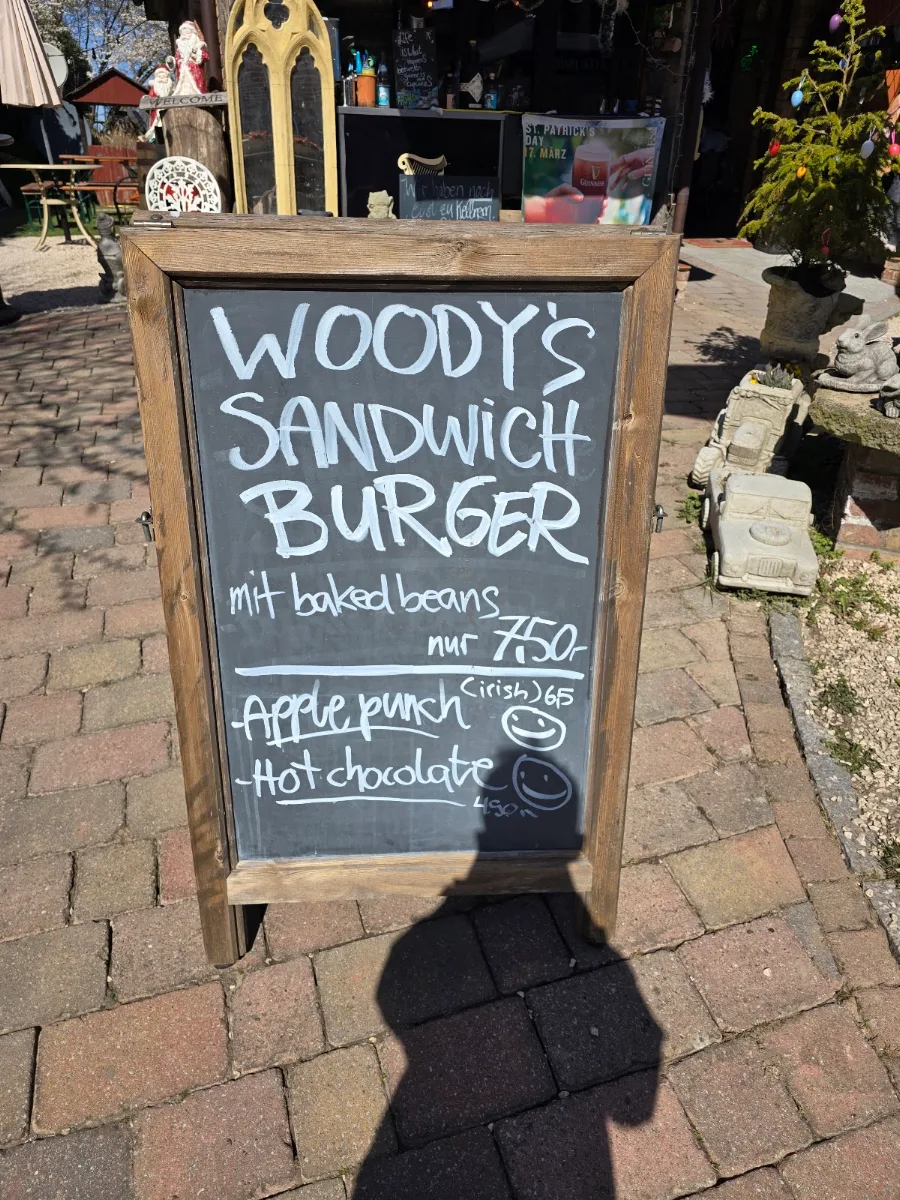 WELCOME
ST. PATRICK'S
DAY
17. MÄRZ
GUINNESS
Wir haben noch
WOODY'S
SANDWiCH
BURGER
mit baked beans
nur 7,50
(irish) 6,5
-Apple punch
-Hot chocolate
4,50